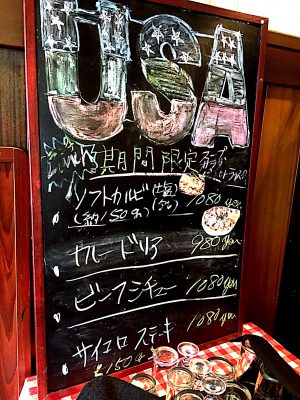 USA
期間限定
ソフトカルビ (塩) 1080yen
(約150g)
カレードリア 980yen
ビーフシチュー 1080yen
サイコロステーキ 1080yen
150g